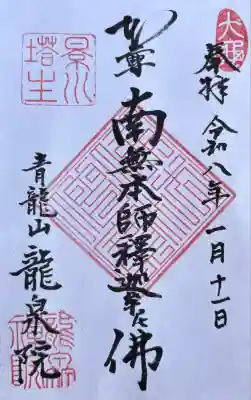 奉拝 令和八年 一月十一日
南無本師釋迦牟尼佛
青龍山 龍泉院
景川
塔主